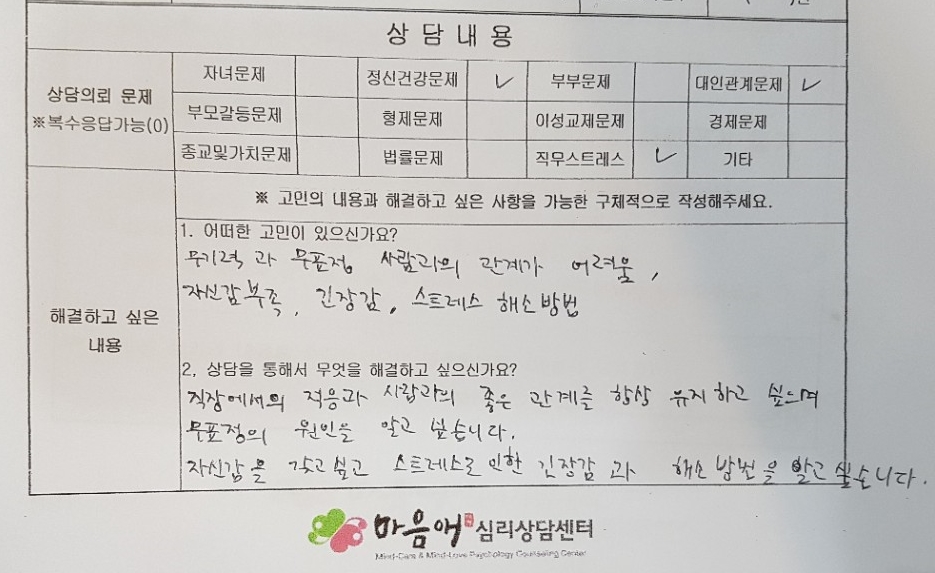 상담내용
상담의뢰 문제
※복수응답가능(0)
자녀문제 정신건강문제 ✓ 부부문제 대인관계문제 ✓
부모갈등문제 형제문제 이성교제문제 경제문제
종교및가치문제 법률문제 직무스트레스 ✓ 기타
해결하고 싶은
내용
※ 고민의 내용과 해결하고 싶은 사항을 가능한 구체적으로 작성해주세요.
1. 어떠한 고민이 있으신가요?
무기력과 무표정 사람과의 관계가 어려움,
자신감부족, 긴장감, 스트레스 해소방법
2, 상담을 통해서 무엇을 해결하고 싶으신가요?
직장에서의 적응과 사람과의 좋은 관계를 항상 유지하고 싶으며
무표정의 원인을 알고 싶습니다.
자신감을 갖고싶고 스트레스로 인한 긴장감과 해소방법을 알고싶습니다.
마음애 심리상담센터
Mind-Care & Mind-Love Psychology Counseling Center